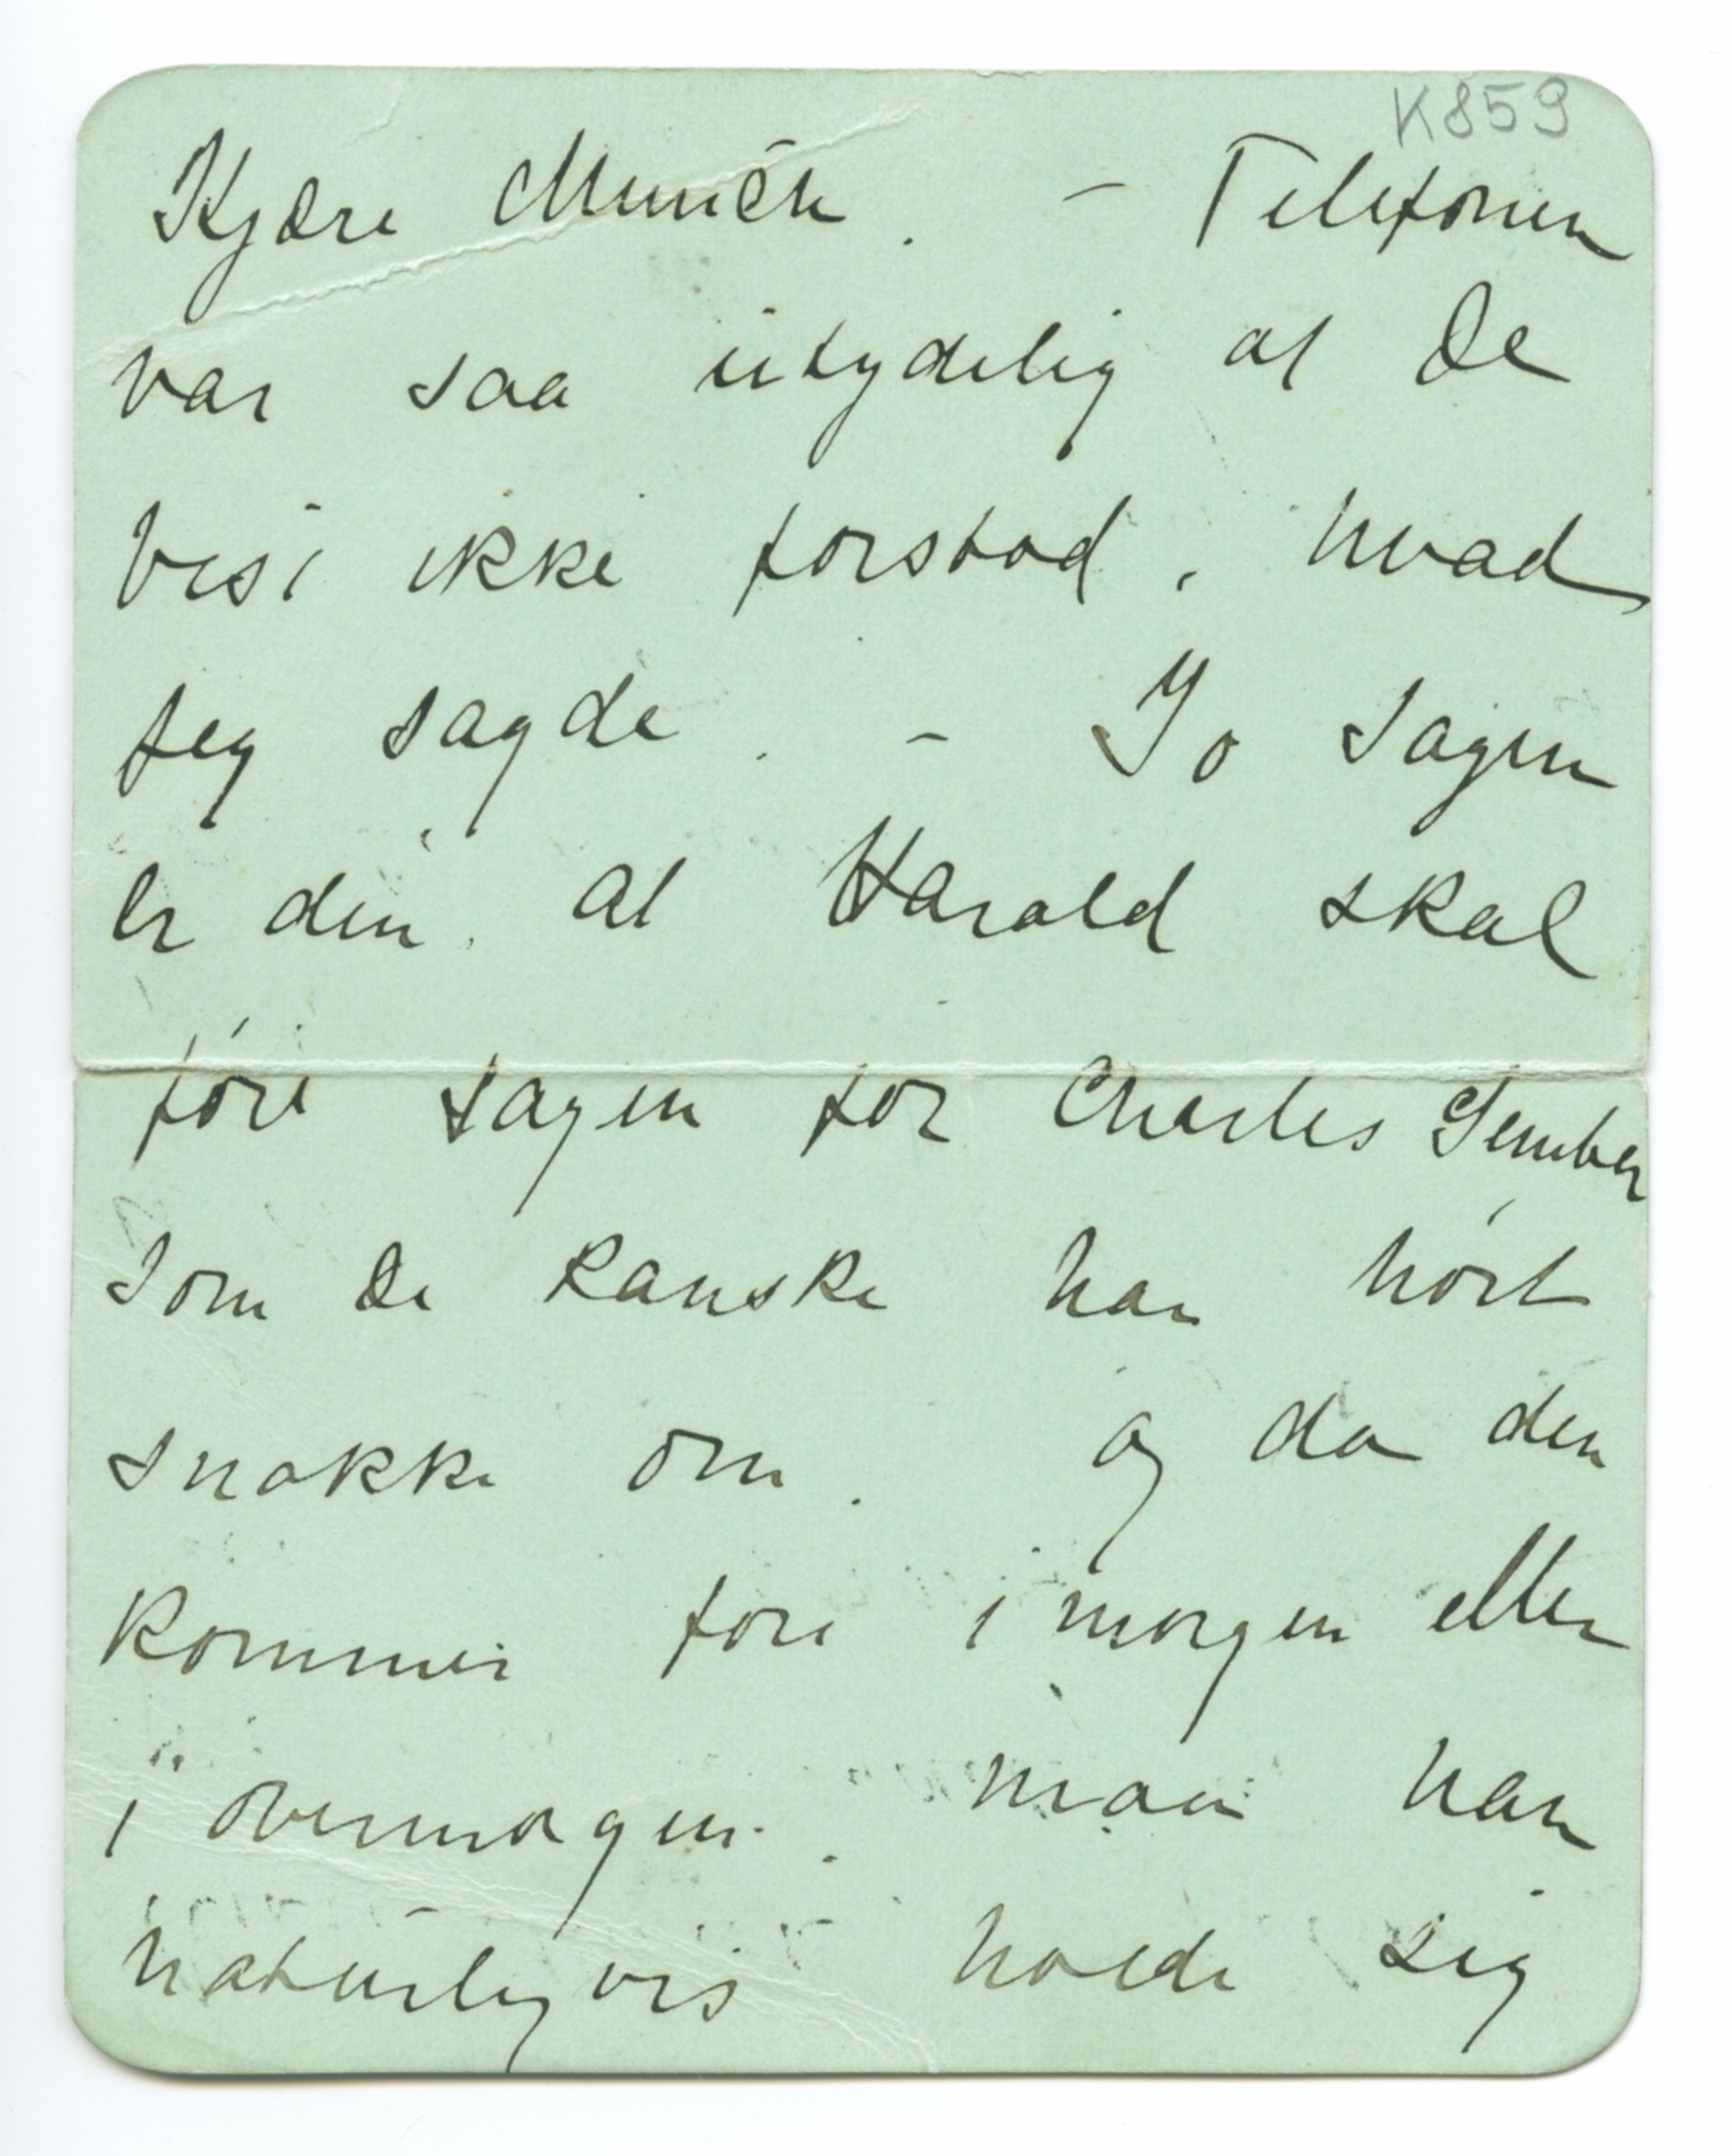 K859
Kjære Munch. – Telefonen
var saa utydelig at De
vist ikke forstod, hvad
jeg sagde. – Jo Sagen
er den, at Harald skal
føre Sagen for Charles
som De kanske har hørt
snakke om. og da den
kommer fore i morgen eller
i overmorgen, maa han
naturligvis holde sig